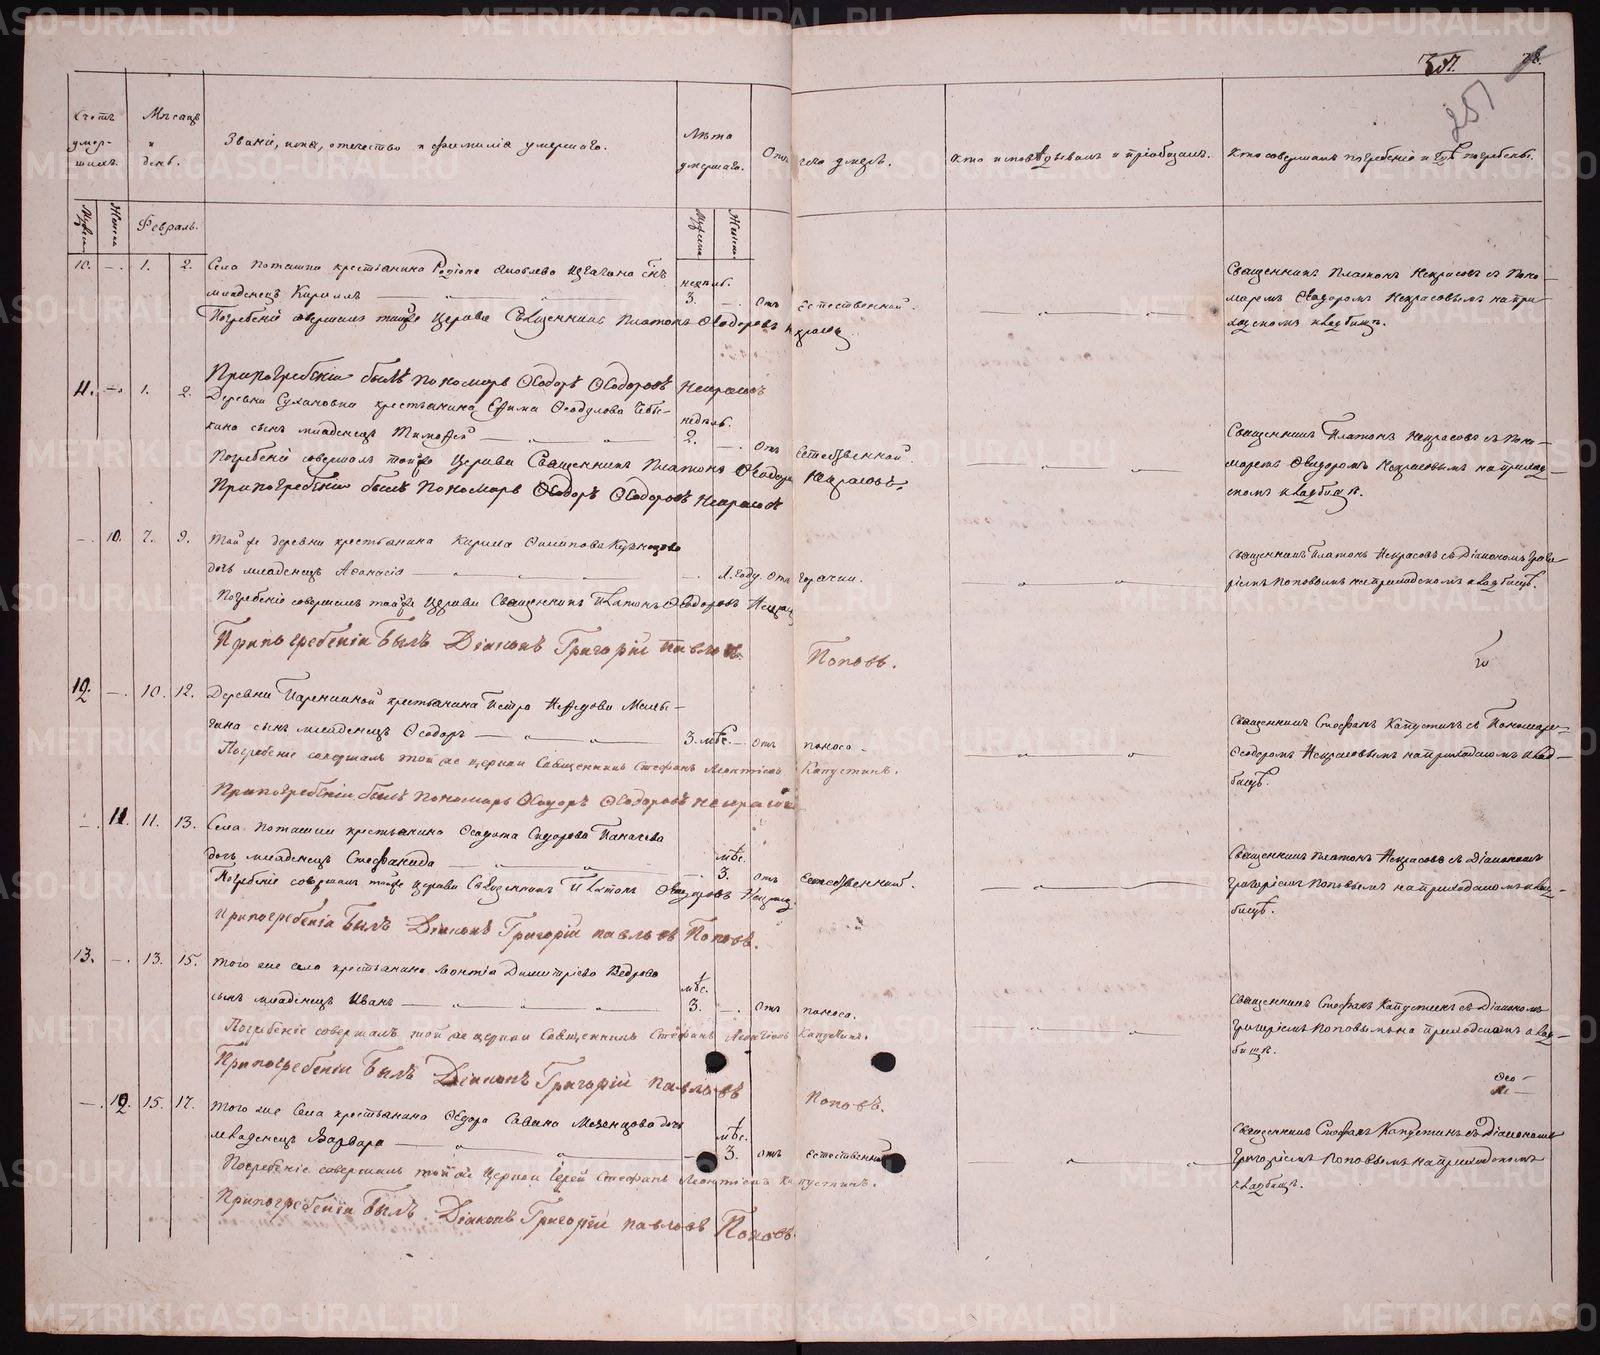 Счетъ умер-шихъ.
Мѣсяцъ и день.
Званіе, имя, отечество и фамилія умершаго.
Лѣта умершаго.
Отъ чего умеръ.
Кто исповѣдывалъ и пріобщалъ.
Кто совершалъ погребеніе и гдѣ погребены.
Февраль.
10. — 1. 2. Села Поташки крестьянина Родіона Яковлева сынъ
младенецъ Кириллъ — недѣль. 3. — Отъ естественной.
Священникъ Платонъ Некрасовъ съ Поно-
маремъ Ѳеодоромъ Некрасовымъ на при-
ходскомъ кладбищѣ.
Погребеніе совершалъ тойже Церкви Священникъ Платонъ Ѳеодоровъ Некрасовъ
Припогребеніи былъ пономарь Ѳеодоръ Ѳеодоровъ Некрасовъ
11. — 1. 2. Деревни Сухановки крестьянина Ефима Ѳеодулова
сынъ младенецъ Тимофей — недѣль. 2. — Отъ естественной.
Священникъ Платонъ Некрасовъ съ Поно-
маремъ Ѳеодоромъ Некрасовымъ на приход-
скомъ кладбищѣ.
Погребеніе совершалъ тойже Церкви Священникъ Платонъ Ѳеодоровъ Некрасовъ.
Припогребеніи былъ пономарь Ѳеодоръ Ѳеодоровъ Некрасовъ
— 10. 7. 9. Тойже деревни крестьянина Кирила Филипова Кузнецова
дочь младенецъ Аѳанасія — 1. году. Отъ горячки.
Священникъ Платонъ Некрасовъ съ Діакономъ Григо-
ріемъ Поповымъ на приходскомъ кладбищѣ.
Погребеніе совершалъ тойже Церкви Священникъ Платонъ Ѳеодоровъ
Припогребеніи былъ Діаконъ Григорій Павловъ Поповъ.
12. — 10. 12. Деревни крестьянина Петра
сынъ младенецъ Ѳеодоръ — 3. мѣс. — Отъ поноса.
Священникъ Стефанъ Капустинъ съ Пономаремъ
Ѳеодоромъ Некрасовымъ на приходскомъ клад-
бищѣ.
Погребеніе совершалъ той же церкви Священникъ Стефанъ Леонтіевъ Капустинъ.
Припогребеніи былъ пономарь Ѳеодоръ Ѳеодоровъ Некрасовъ
— 11. 11. 13. Села Поташки крестьянина Ѳеодота Сидорова Паначева
дочь младенецъ Стефанида — мѣс. 3. Отъ естественной.
Священникъ Платонъ Некрасовъ съ Діакономъ
Григоріемъ Поповымъ на приходскомъ клад-
бищѣ.
Погребеніе совершалъ тойже Церкви Священникъ Платонъ Ѳеодоровъ
Припогребеніи былъ Діаконъ Григорій Павловъ Поповъ.
13. — 13. 15. Того же села крестьянина Леонтія Димитріева Ведрова
сынъ младенецъ Иванъ — мѣс. 3. — Отъ поноса.
Священникъ Стефанъ Капустинъ съ Діакономъ
Григоріемъ Поповымъ на приходскомъ клад-
бищѣ.
Погребеніе совершалъ той же церкви Священникъ Стефанъ Леонтіевъ Капустинъ.
Припогребеніи былъ Діаконъ Григорій Павловъ Поповъ.
— 12. 15. 17. Того же Села крестьянина Ѳедора Савина Мезенцова дочь
младенецъ Варвара — мѣс. 3. Отъ естественной.
Священникъ Стефанъ Капустинъ съ Діакономъ
Григоріемъ Поповымъ на приходскомъ
кладбищѣ.
Погребеніе совершалъ той же Церкви Іерей Стефанъ Леонтіевъ Капустинъ.
Припогребеніи былъ Діаконъ Григорій Павловъ Поповъ.
METRIKI.GASO-URAL.RU